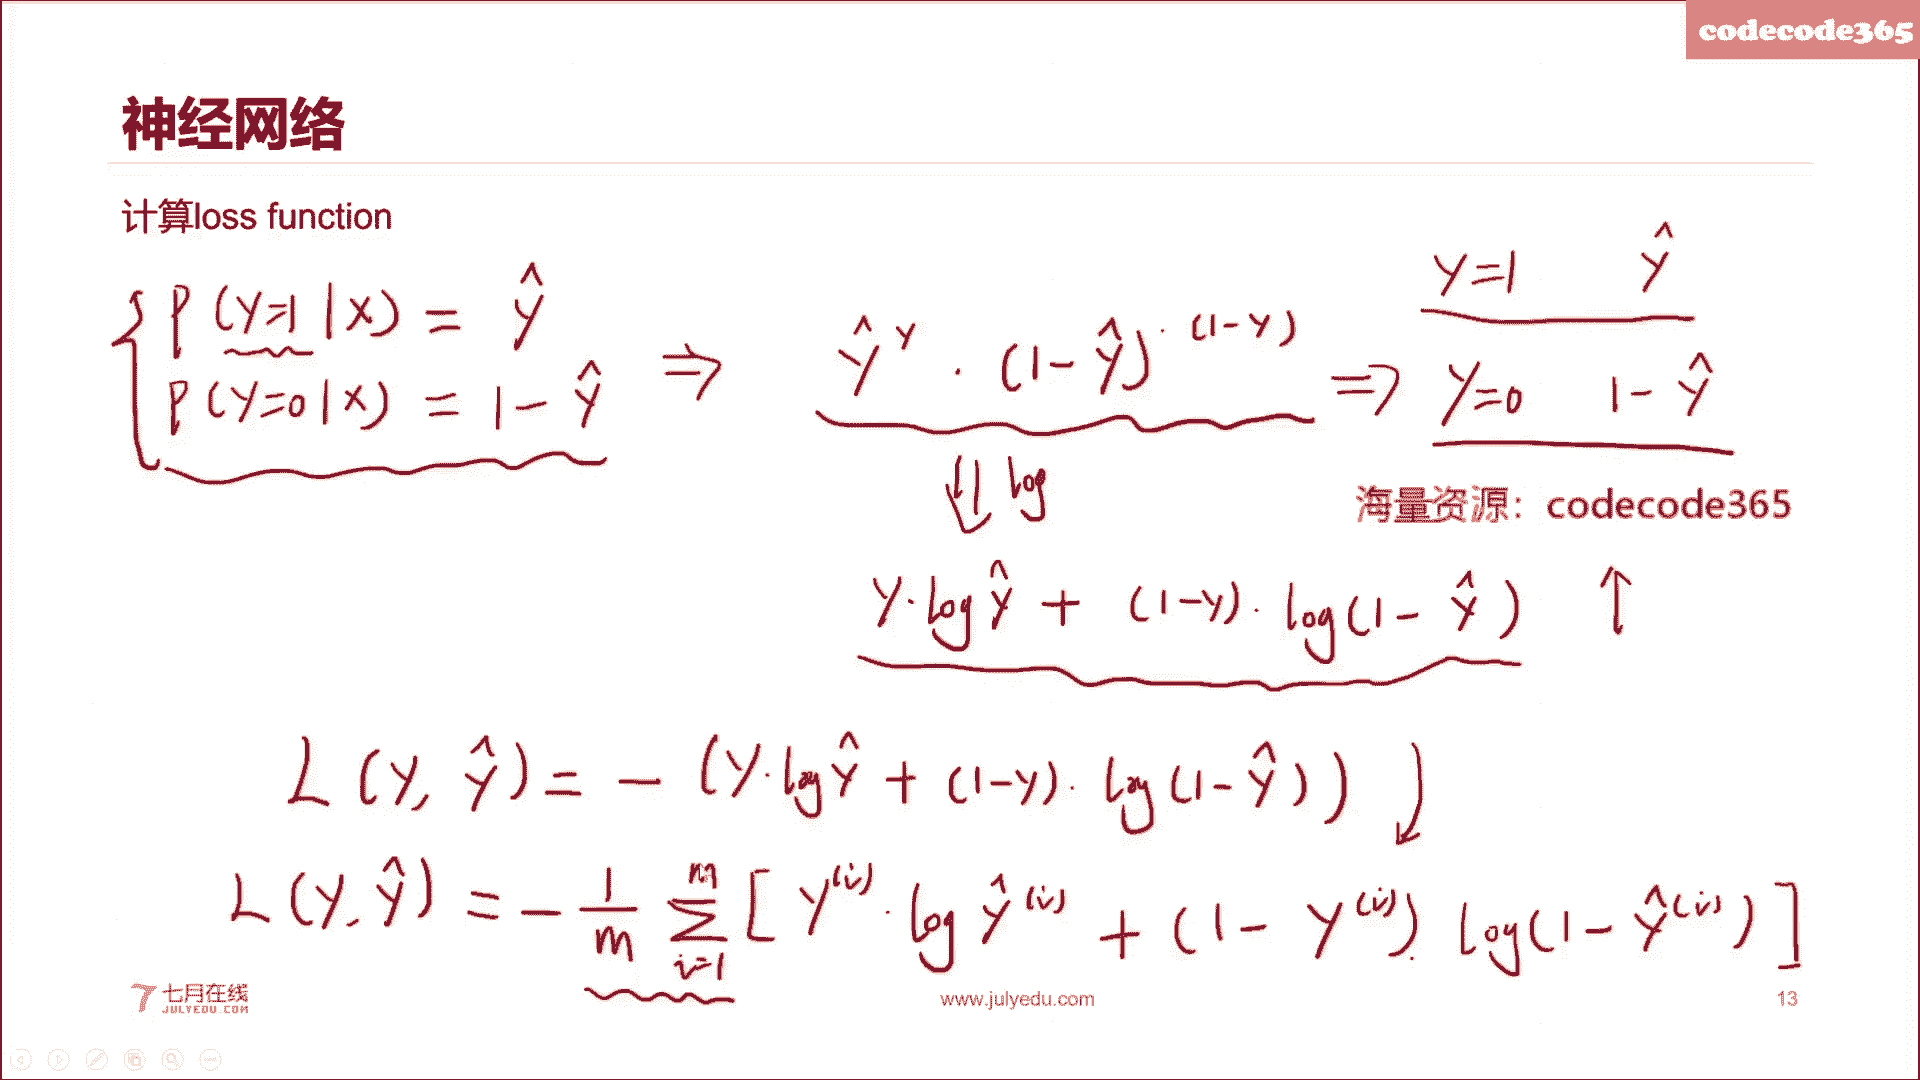 codecode365
神经网络
计算loss function
P(Y=1|X) = ŷ
P(Y=0|X) = 1-ŷ
⇒ ŷ^y · (1-ŷ)^(1-y)
⇒ y=1 ŷ
y=0 1-ŷ
⇓ log
海量资源：codecode365
y·logŷ + (1-y)·log(1-ŷ) ↑
L(y, ŷ) = -(y·logŷ + (1-y)·log(1-ŷ)) ↓
L(y, ŷ) = -1/m ∑_{i=1}^{m} [y^(i)·logŷ^(i) + (1-y^(i))·log(1-ŷ^(i))]
七月在线
JULYEDU.COM
www.julyedu.com
13